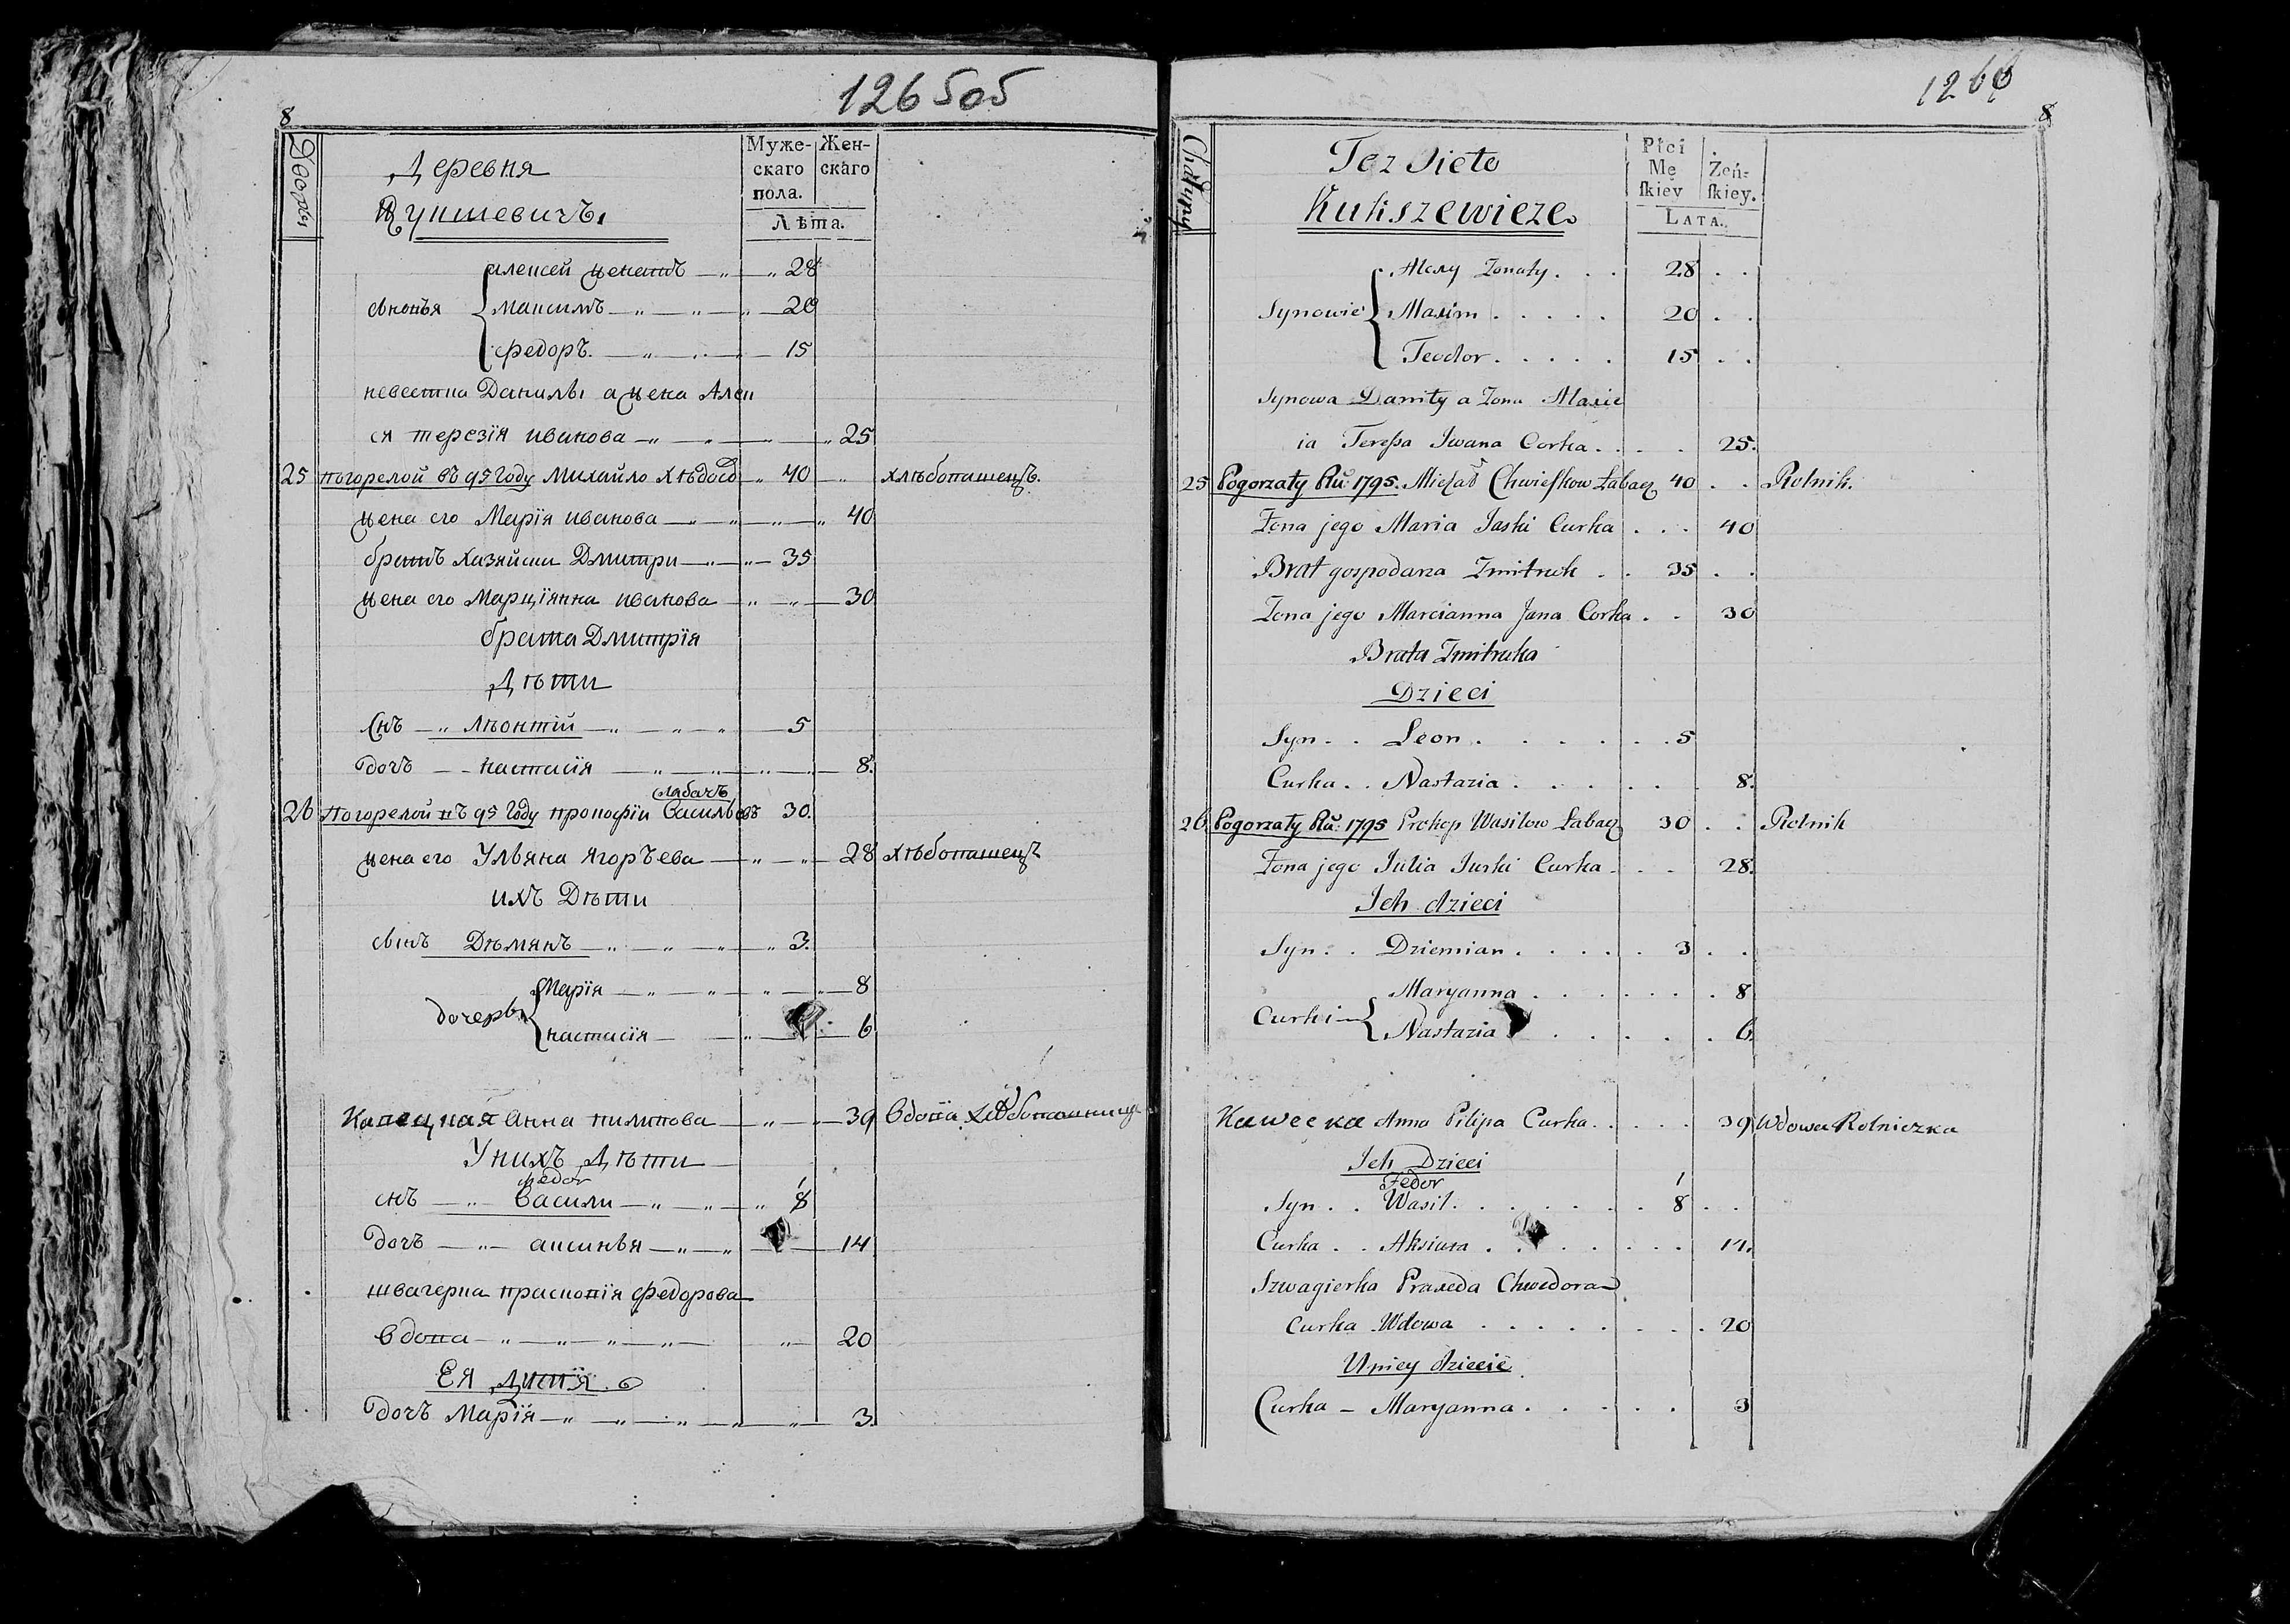 126505
8
Дворы
Деревня
Кукшевичъ
Муже-
скаго
пола.
Жен-
скаго
Лѣта.
алексей женатъ 28
сыновья
максимъ 20
федоръ 15
невестка Данилы а жена Алек
ся терезїя иванова 25
25 погорелой въ 95 году Михайло 40 хлѣбопашецъ.
жена его Марїя иванова 40
братъ хазяйски Дмитри 35
жена его Марцїянна иванова 30
брата Дмитрїя
Дѣти
Снъ лѣонтій 5
дочъ настасїя 8.
лабачъ
26 погорелой въ 95 году прокофїи Васильевъ 30.
жена его Ульяна ягоръева 28 хлѣбопашецъ
ихъ Дѣти
сынъ Дѣмянъ 3.
Марїя 8
дочеры
настасїя 6
Кавецкая анна пилипова 39 вдова
У нихъ Дѣти
федor
1
снъ Васили 8
дочъ аксинья 14
швагерка прасковїя федорова
вдова 20
Ея дитя
дочъ Марїя 3.
126
8
Chałupy
Tez Sieło
Kukszewicze
Płci
Mę
ſkiey
Żeń-
ſkiey.
LATA.
Alexy Zonaty. 28
Synowie
Maxim 20
Teodor 15
Synowa Daniły a Zona Alexie
ia Tereſsa Iwana Corka 25.
25 Pogorzały Ru: 1795. Michał Chwieſkow Łabacz 40 Rolnik.
Zona jego Maria Jaski Curka 40
Brat gospodarza Zmitruk 35
Zona jego Marcianna Jana Corka 30
Brata Zmitruka
Dzieci
Syn Leon 5
Curka Nastazia 8.
26 Pogorzały Ru: 1795 Prokop Wasilow Łabacz 30 Rolnik
Zona jego Julia Jurki Curka 28.
Ich dzieci
Syn Dziemian 3
Maryanna 8
Curki
Nastazia 6.
Kawecka Anna Pilipa Curka 39 Wdowa Rolniczka
Ich Dzieci
Fedor
1
Syn Wasil 8
Curka Aksiura 14.
Szwagierka Praxeda Chwedora
Curka Wdowa 20
U niey dziecie
Curka – Maryanna 3